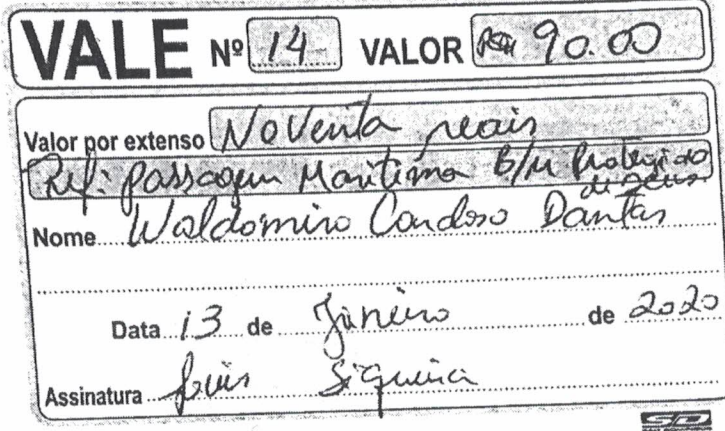 VALE Nº 14 VALOR R$ 90.00
Valor por extenso Noventa reais
Ref: Passagem Maritima B/M Protegido
de Deus
Nome Waldomiro Cardoso Dantas
Data 13 de Janeiro de 2020
Assinatura Luis Siqueira
SD